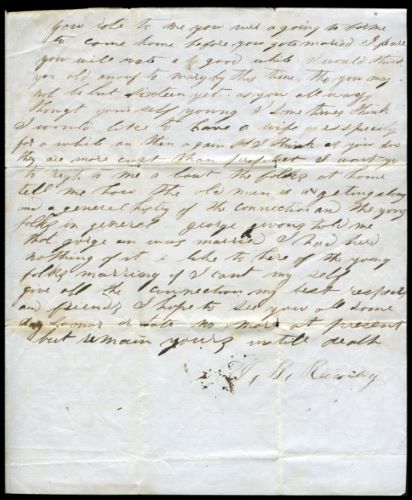 You rote to me you was a going to
to come home before you gote maried I
you will wate a good while I would think
you old enouf to mary by this time tho you may
not be but sixteen yet as you all ways
thougt your self young I some times think
I would like to have a wife
for a while an then again I think as you do
they are more cust than I want you
to right to me a bout the folks at home
tell me how the old man is a geting along
an a general of the connection and the young
folks in general george givong told me
that gorge an was married I had herd
nothing of it i like to here of the young
folks marring if I cant my self
give all the connection my best respects
and friends I hope to see you all some
day sooner or late no more at present
but remain yours untill death